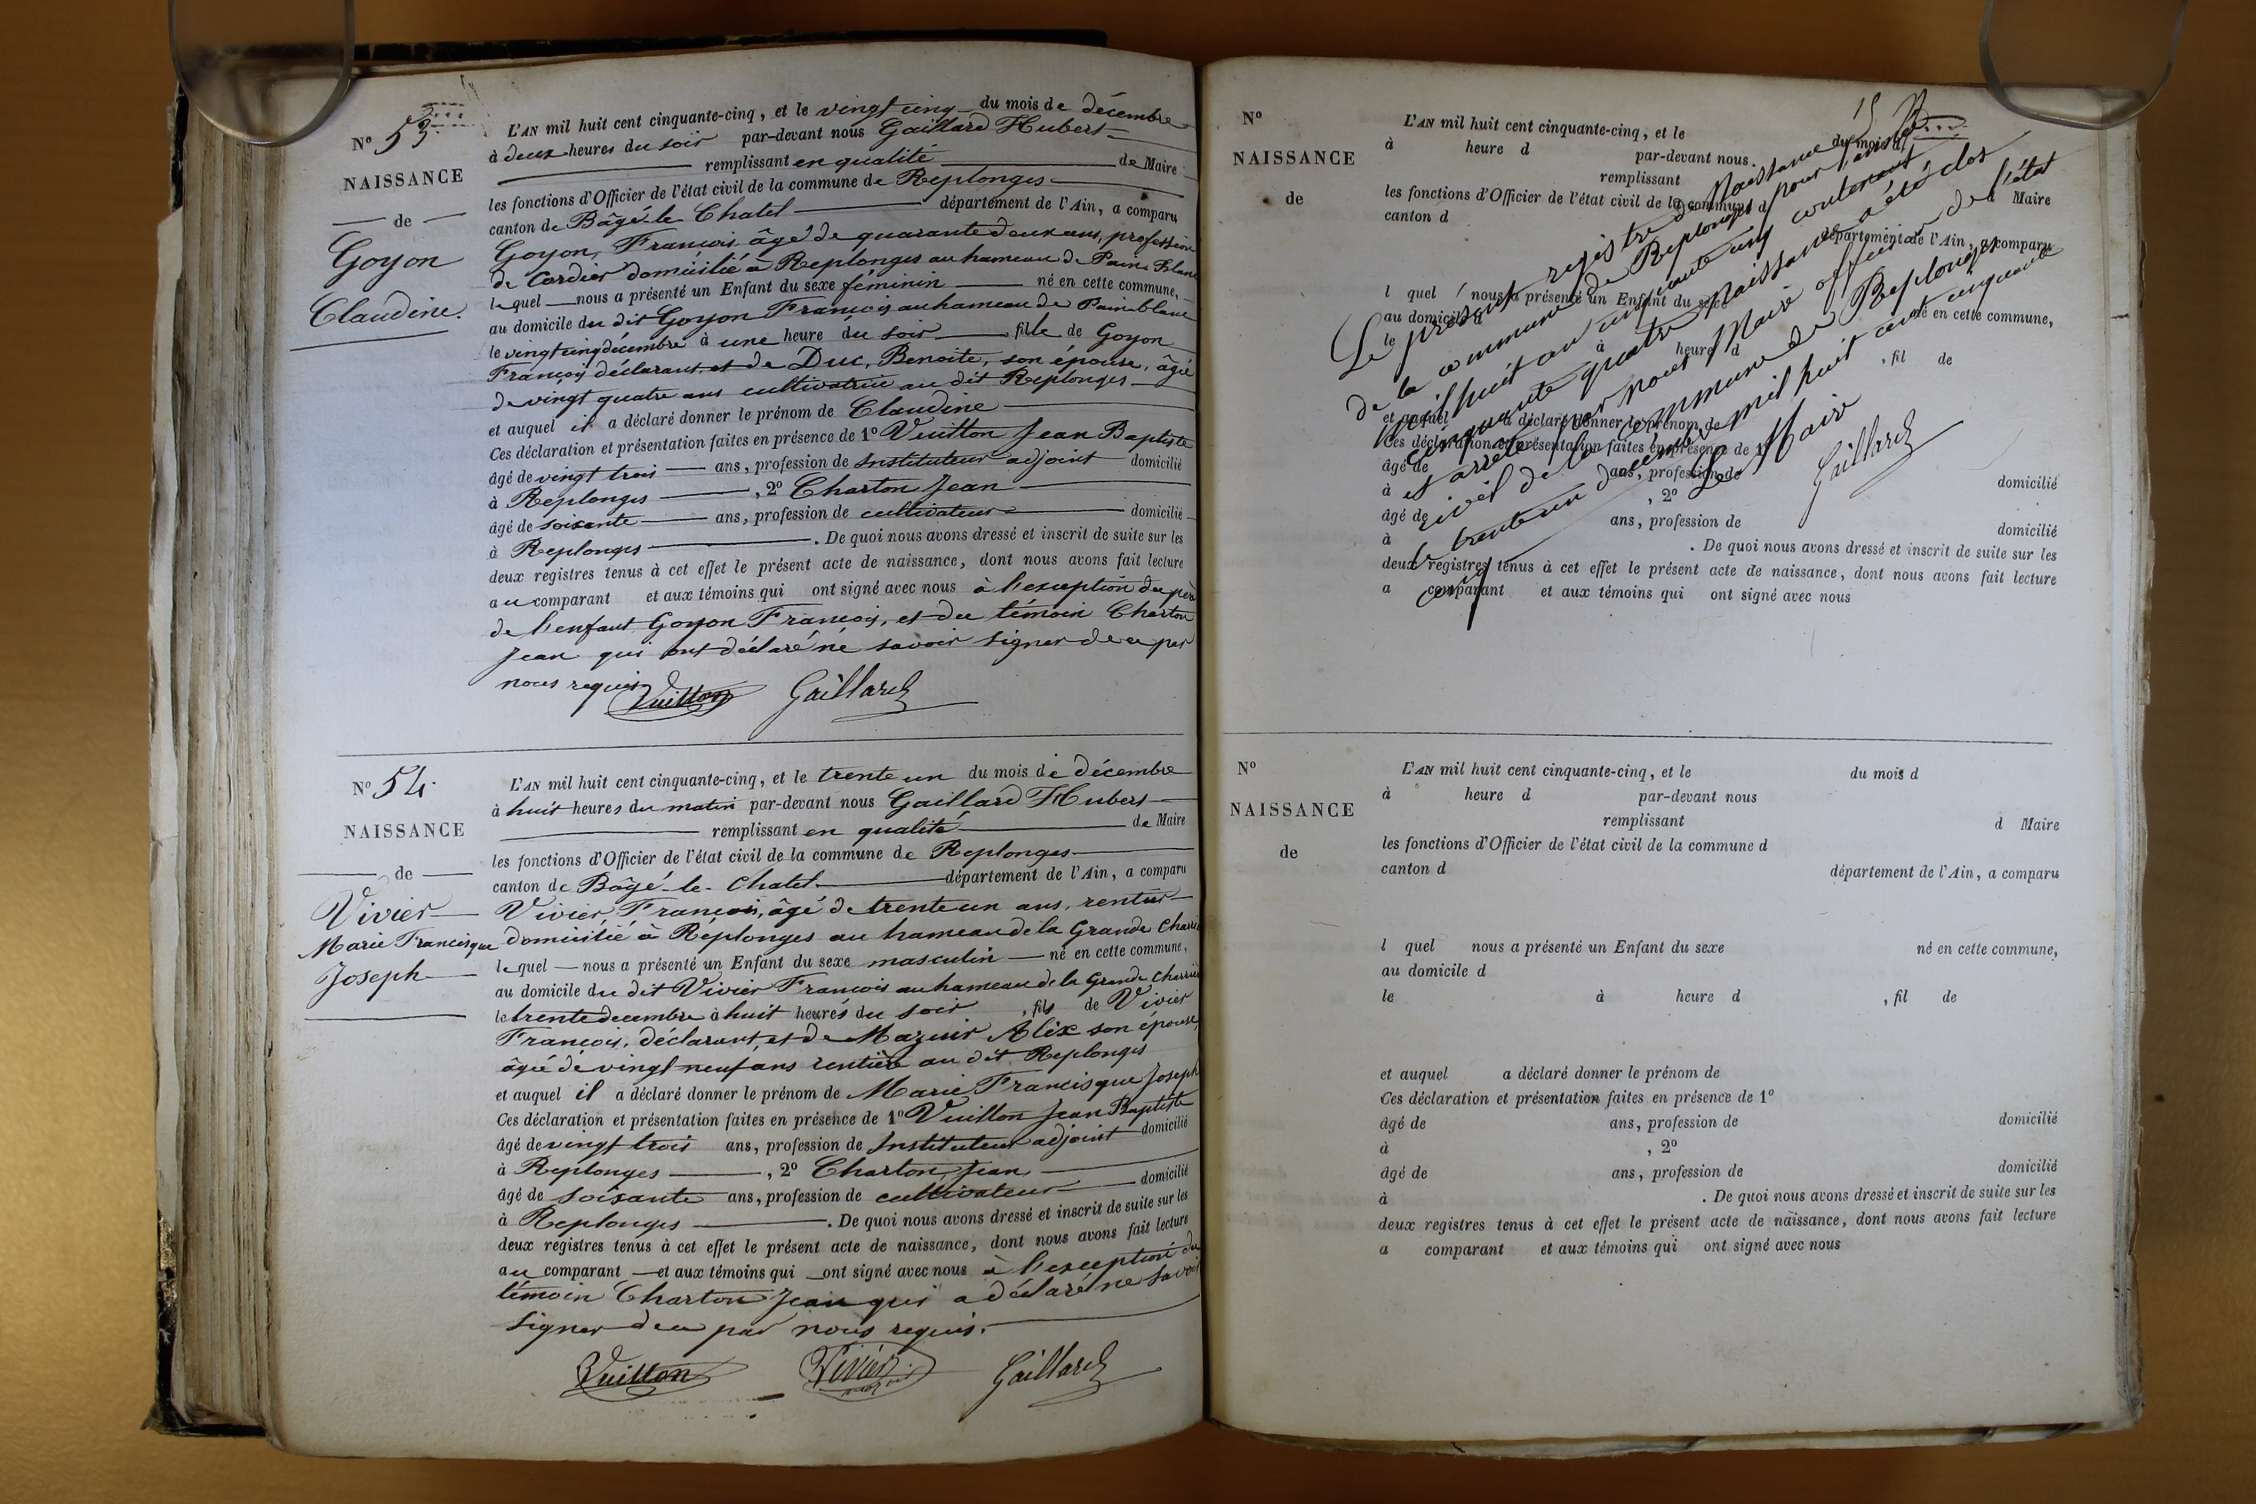 N° 53.
NAISSANCE
de
Goyon
Claudine.
L'AN mil huit cent cinquante-cinq, et le vingt cinq du mois de décembre
à deux heures du soir par-devant nous Gaillard Hubert
remplissant en qualité de Maire
les fonctions d'Officier de l'état civil de la commune de Replonges
canton de Bâgé-le-Chatel département de l'Ain, a comparu
Goyon, François âgé de quarante deux ans, profession
de Cordier domicilié à Replonges au hameau de Pain-Blanc
lequel nous a présenté un Enfant du sexe féminin né en cette commune,
au domicile du dit Goyon François au hameau de Pain-blanc
le vingt cinq décembre à une heure du soir fille de Goyon
François déclarant et de Duc, Benoite, son épouse, âgée
de vingt quatre ans cultivatrice au dit Replonges
et auquel il a déclaré donner le prénom de Claudine
Ces déclaration et présentation faites en présence de 1° Vuitton Jean Baptiste
âgé de vingt trois ans, profession de Instituteur adjoint domicilié
à Replonges, 2° Charton Jean
âgé de soixante ans, profession de cultivateur domicilié
à Replonges. De quoi nous avons dressé et inscrit de suite sur les
deux registres tenus à cet effet le présent acte de naissance, dont nous avons fait lecture
au comparant et aux témoins qui ont signé avec nous à l'exception du père
de l'enfant Goyon François, et du témoin Charton
Jean qui ont déclaré ne savoir signer de ce par
nous requis
Vuitton Gaillard
N° 54.
NAISSANCE
de
Vivier
Marie Francisque
Joseph
L'AN mil huit cent cinquante-cinq, et le trente un du mois de décembre
à huit heures du matin par-devant nous Gaillard Hubert
remplissant en qualité de Maire
les fonctions d'Officier de l'état civil de la commune de Replonges
canton de Bâgé-le-Chatel département de l'Ain, a comparu
Vivier, François, âgé de trente un ans, rentier
domicilié à Replonges au hameau de la Grande Charrière
lequel nous a présenté un Enfant du sexe masculin né en cette commune,
au domicile du dit Vivier François au hameau de la Grande Charrière
le trente decembre à huit heures du soir, fils de Vivier
François, déclarant, et de Mazuir Alix son épouse,
âgée de vingt neuf ans rentière au dit Replonges
et auquel il a déclaré donner le prénom de Marie Francisque Joseph
Ces déclaration et présentation faites en présence de 1° Vuitton Jean Baptiste
âgé de vingt trois ans, profession de Instituteur adjoint domicilié
à Replonges, 2° Charton, Jean
âgé de soixante ans, profession de cultivateur domicilié
à Replonges. De quoi nous avons dressé et inscrit de suite sur les
deux registres tenus à cet effet le présent acte de naissance, dont nous avons fait lecture
au comparant et aux témoins qui ont signé avec nous à l'exception du
témoin Charton Jean qui a déclaré ne savoir
signer de ce par nous requis.
Vuitton Vivier Gaillard
N°
NAISSANCE
de
L'AN mil huit cent cinquante-cinq, et le du mois d
à heure d par-devant nous
remplissant
d Maire
les fonctions d'Officier de l'état civil de la commune d
canton d département de l'Ain, a comparu
l quel nous a présenté un Enfant du sexe né en cette commune,
au domicile d
le à heure d, fil de
et auquel a déclaré donner le prénom de
Ces déclaration et présentation faites en présence de 1°
âgé de ans, profession de domicilié
à, 2°
âgé de ans, profession de domicilié
à. De quoi nous avons dressé et inscrit de suite sur les
deux registres tenus à cet effet le présent acte de naissance, dont nous avons fait lecture
a comparant et aux témoins qui ont signé avec nous
Le présent registre de Naissance
de la commune de Replonges pour l'année
mil huit cent cinquante cinq contenant
cinquante quatre naissances a été clos
et arrêté par nous Maire officier de l'état
civil de la commune de Replonges
le trente un décembre mil huit cent cinquante
cinq
Le Maire
Gaillard
N°
NAISSANCE
de
L'AN mil huit cent cinquante-cinq, et le du mois d
à heure d par-devant nous
remplissant d Maire
les fonctions d'Officier de l'état civil de la commune d
canton d département de l'Ain, a comparu
l quel nous a présenté un Enfant du sexe né en cette commune,
au domicile d
le à heure d, fil de
et auquel a déclaré donner le prénom de
Ces déclaration et présentation faites en présence de 1°
âgé de ans, profession de domicilié
à, 2°
âgé de ans, profession de domicilié
à. De quoi nous avons dressé et inscrit de suite sur les
deux registres tenus à cet effet le présent acte de naissance, dont nous avons fait lecture
a comparant et aux témoins qui ont signé avec nous